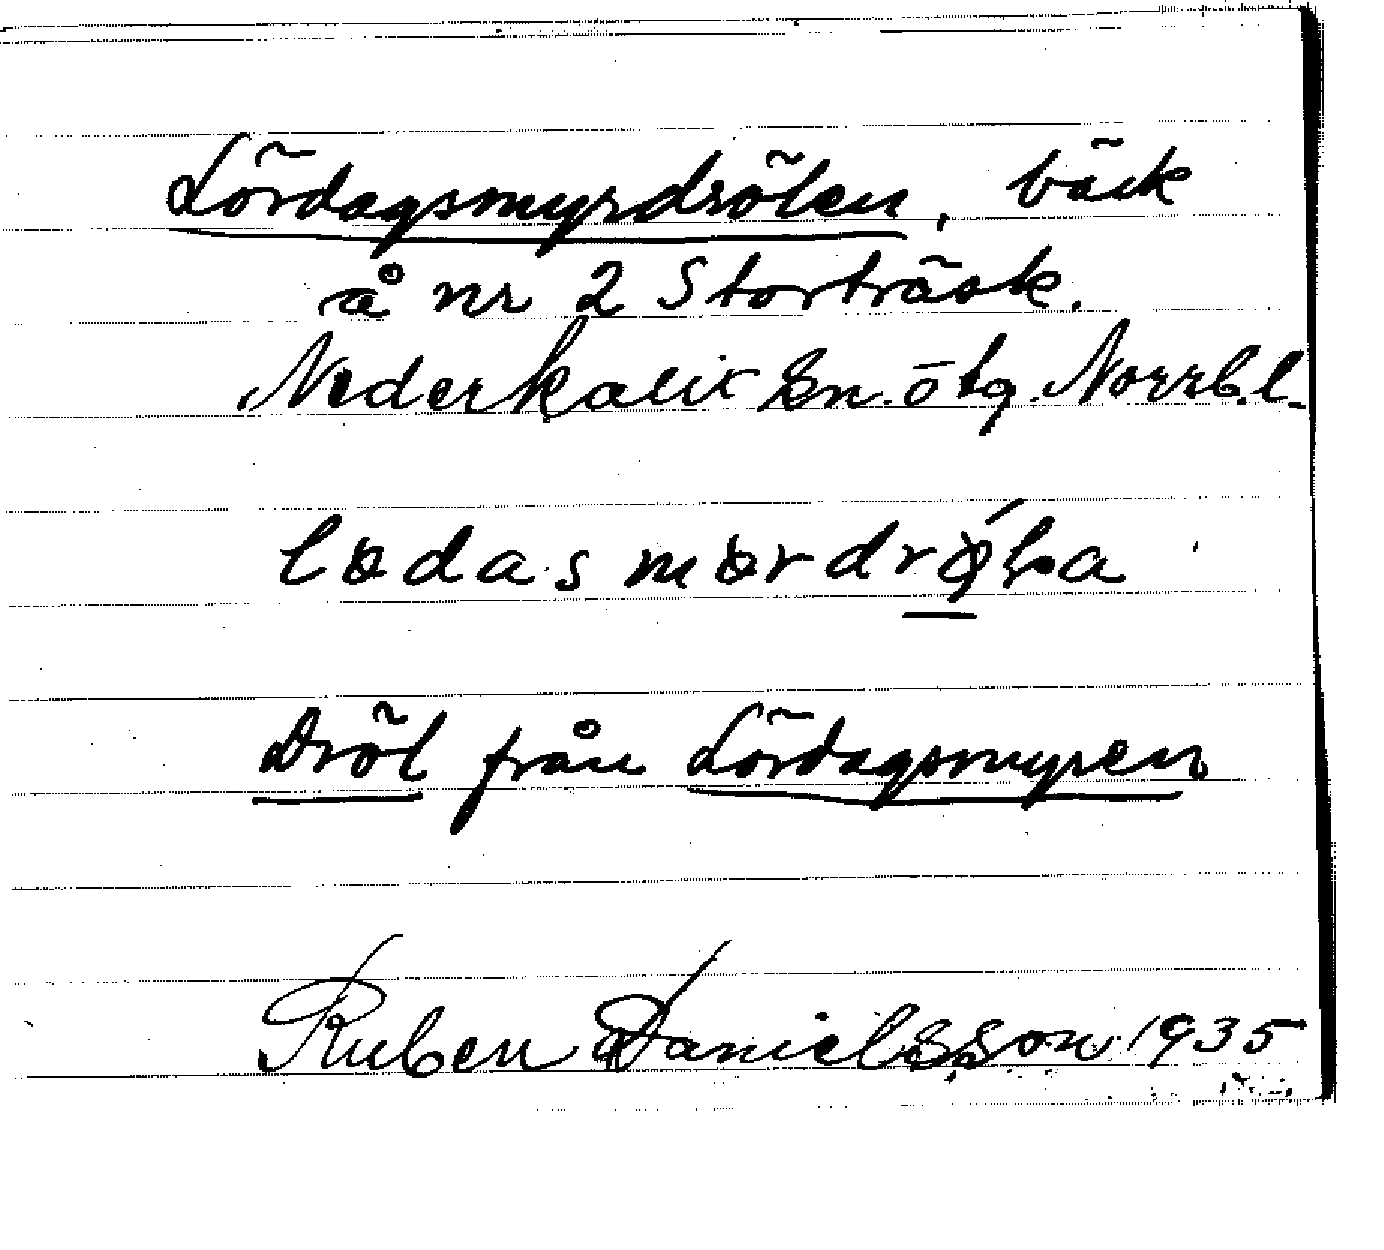 Lördagsmyrdrölen, bäck
å nr 2 Storträsk.
Nederkalix sn. ötg. Norrb. l.
Dröl från Lördagsmyren
Ruben Danielsson 1935